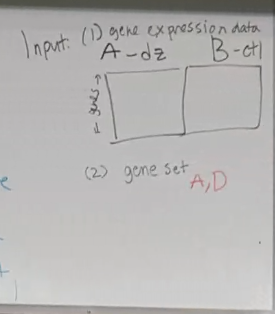 Input: (1) gene expression data
A-dz B-ctl
(2) gene set
A,D
e